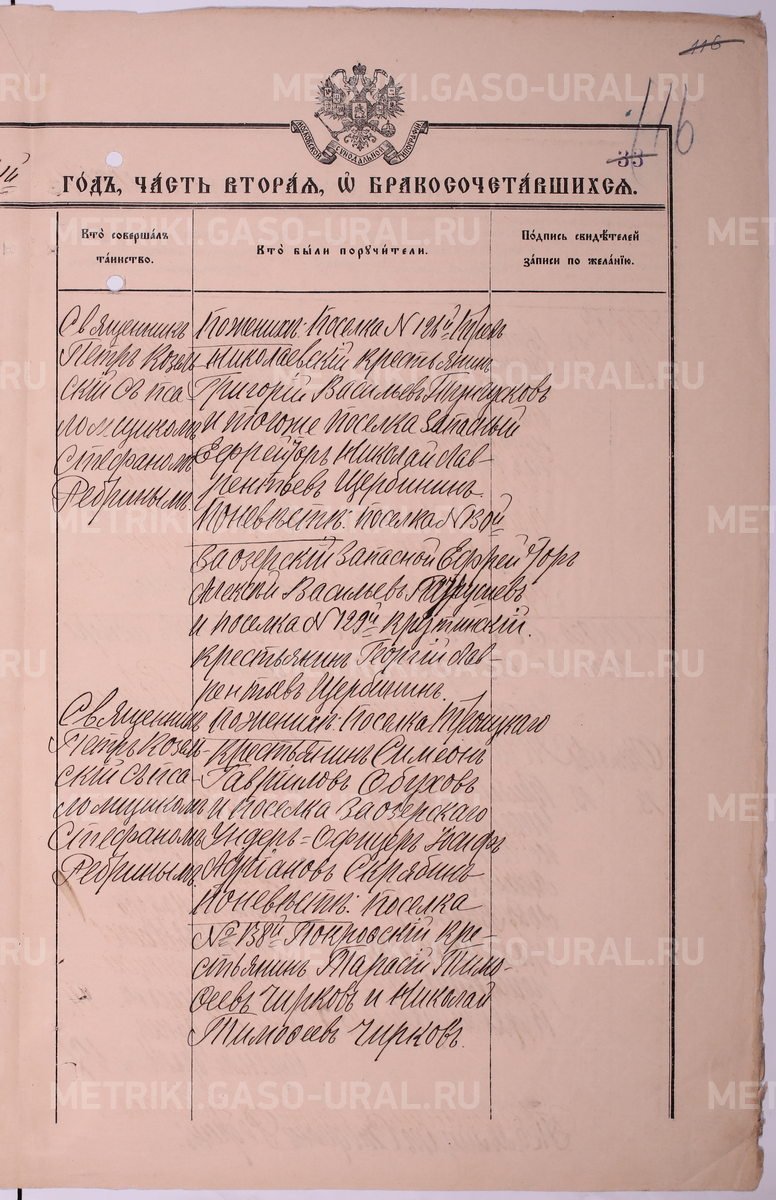 116
116
33
МОСКОВСКОЙ СѴНОДАЛЬНОЙ ТИПОГРАФІИ
ГО́ДЪ, ЧА́СТЬ ВТОРА́Я, Ѽ БРАКОСОЧЕТА́ВШИХСЯ.
Кто̀ совершалъ
та́инство.
Кто̀ бы́ли поручи́тели.
По́дпись свидѣ́телей
за́писи по жела́нію.
Священникъ
Петръ Козель
скій съ пса
ломщикомъ
Стефаномъ
Ребринымъ.
По женихѣ: поселка N
Николаевскій крестьянинъ
Григорій Васильевъ
и тогоже поселка запасный
Ефрейторъ Николай Лав-
рентьевъ Щербининъ.
По невѣстѣ: поселка N 130й
Заозерскій запасной Ефрейторъ
Алексѣй Васильевъ
и поселка N 129й Крутинскій.
крестьянинъ Георгій Лав-
рентьевъ Щербининъ.
Священникъ
Петръ Козель-
скій съ пса-
ломщикомъ
Стефаномъ
Ребринымъ.
По женихѣ: поселка Троицкаго
крестьянинъ Симеонъ
Гавриловъ Обуховъ
и поселка Заозерскаго
Ундеръ=Офицеръ Іосифъ
Адріановъ Скрябинъ
По невѣстѣ: поселка
№ 138й Покровскій кре-
стьянинъ Тарасій Тимо-
ѳеевъ Чирковъ и Николай
Тимоѳеевъ Чирковъ.
METRIKI.GASO-URAL.RU